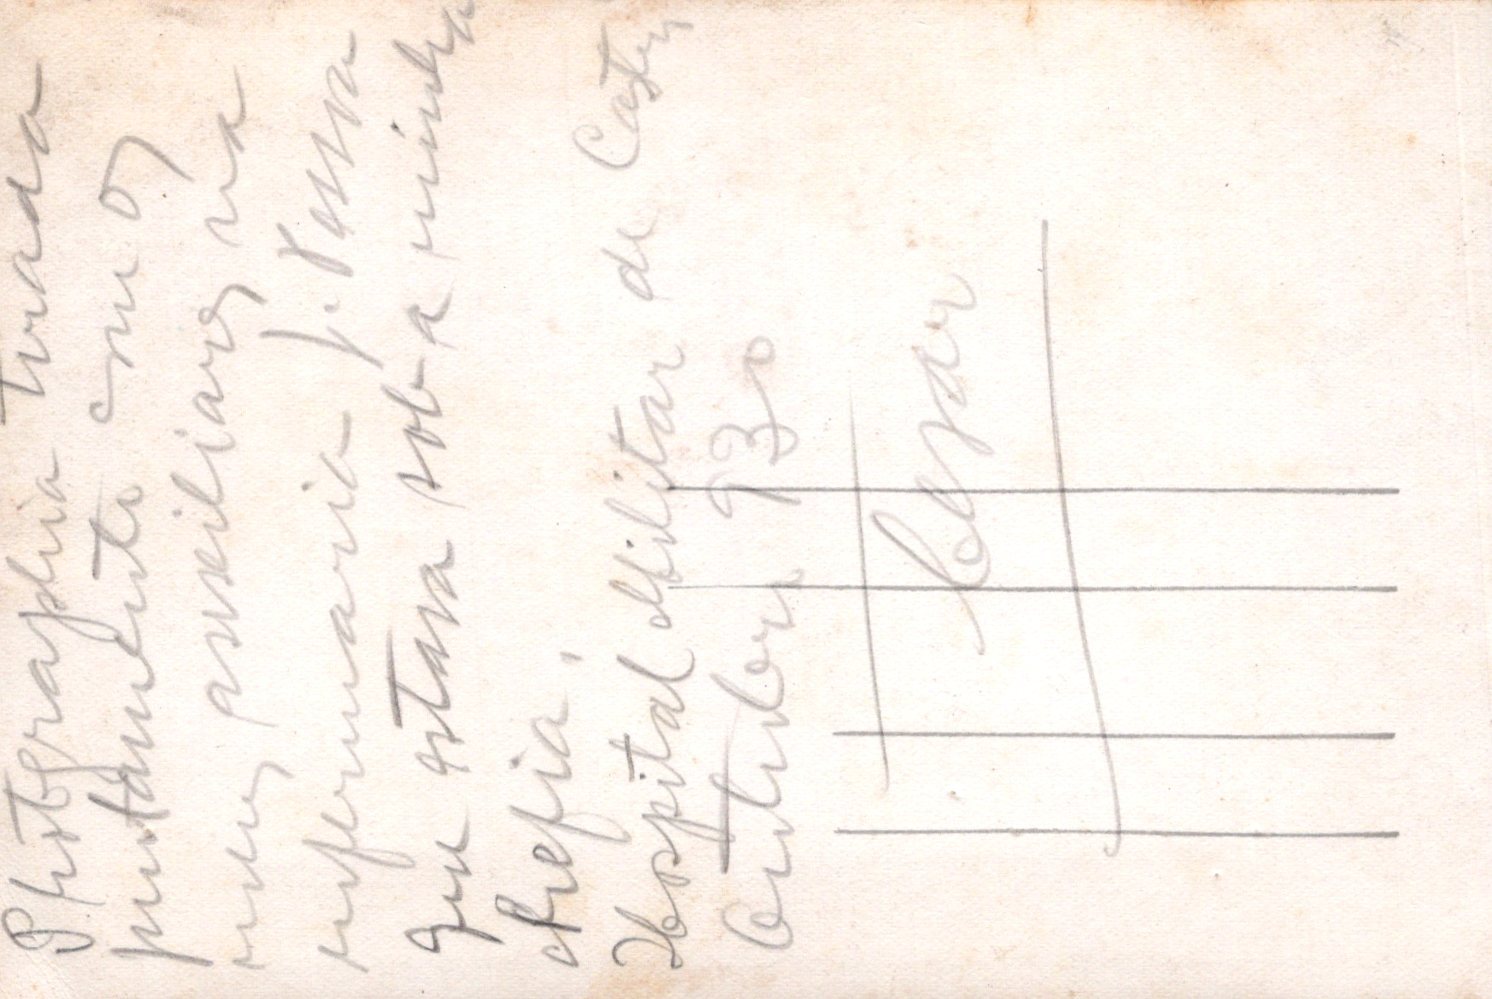 Photographia tirada
juntamente com os
meus auxiliares na
enfermaria J. Pessoa
que estava sob a minha
chefia.
Hospital Militar de
Outubro 930
Cesar